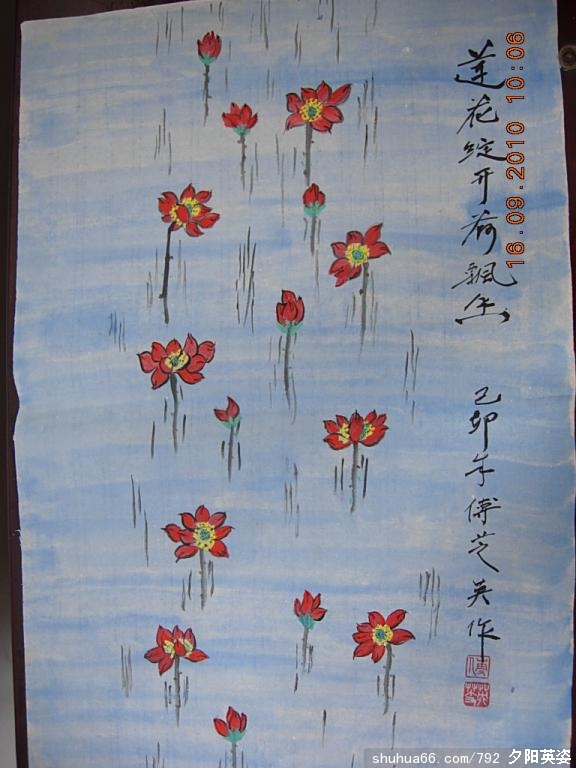 莲花绽开荷飘香
己卯年傅芝英作
16.09.2010 10:06
shuhua66.com/792 夕阳英姿